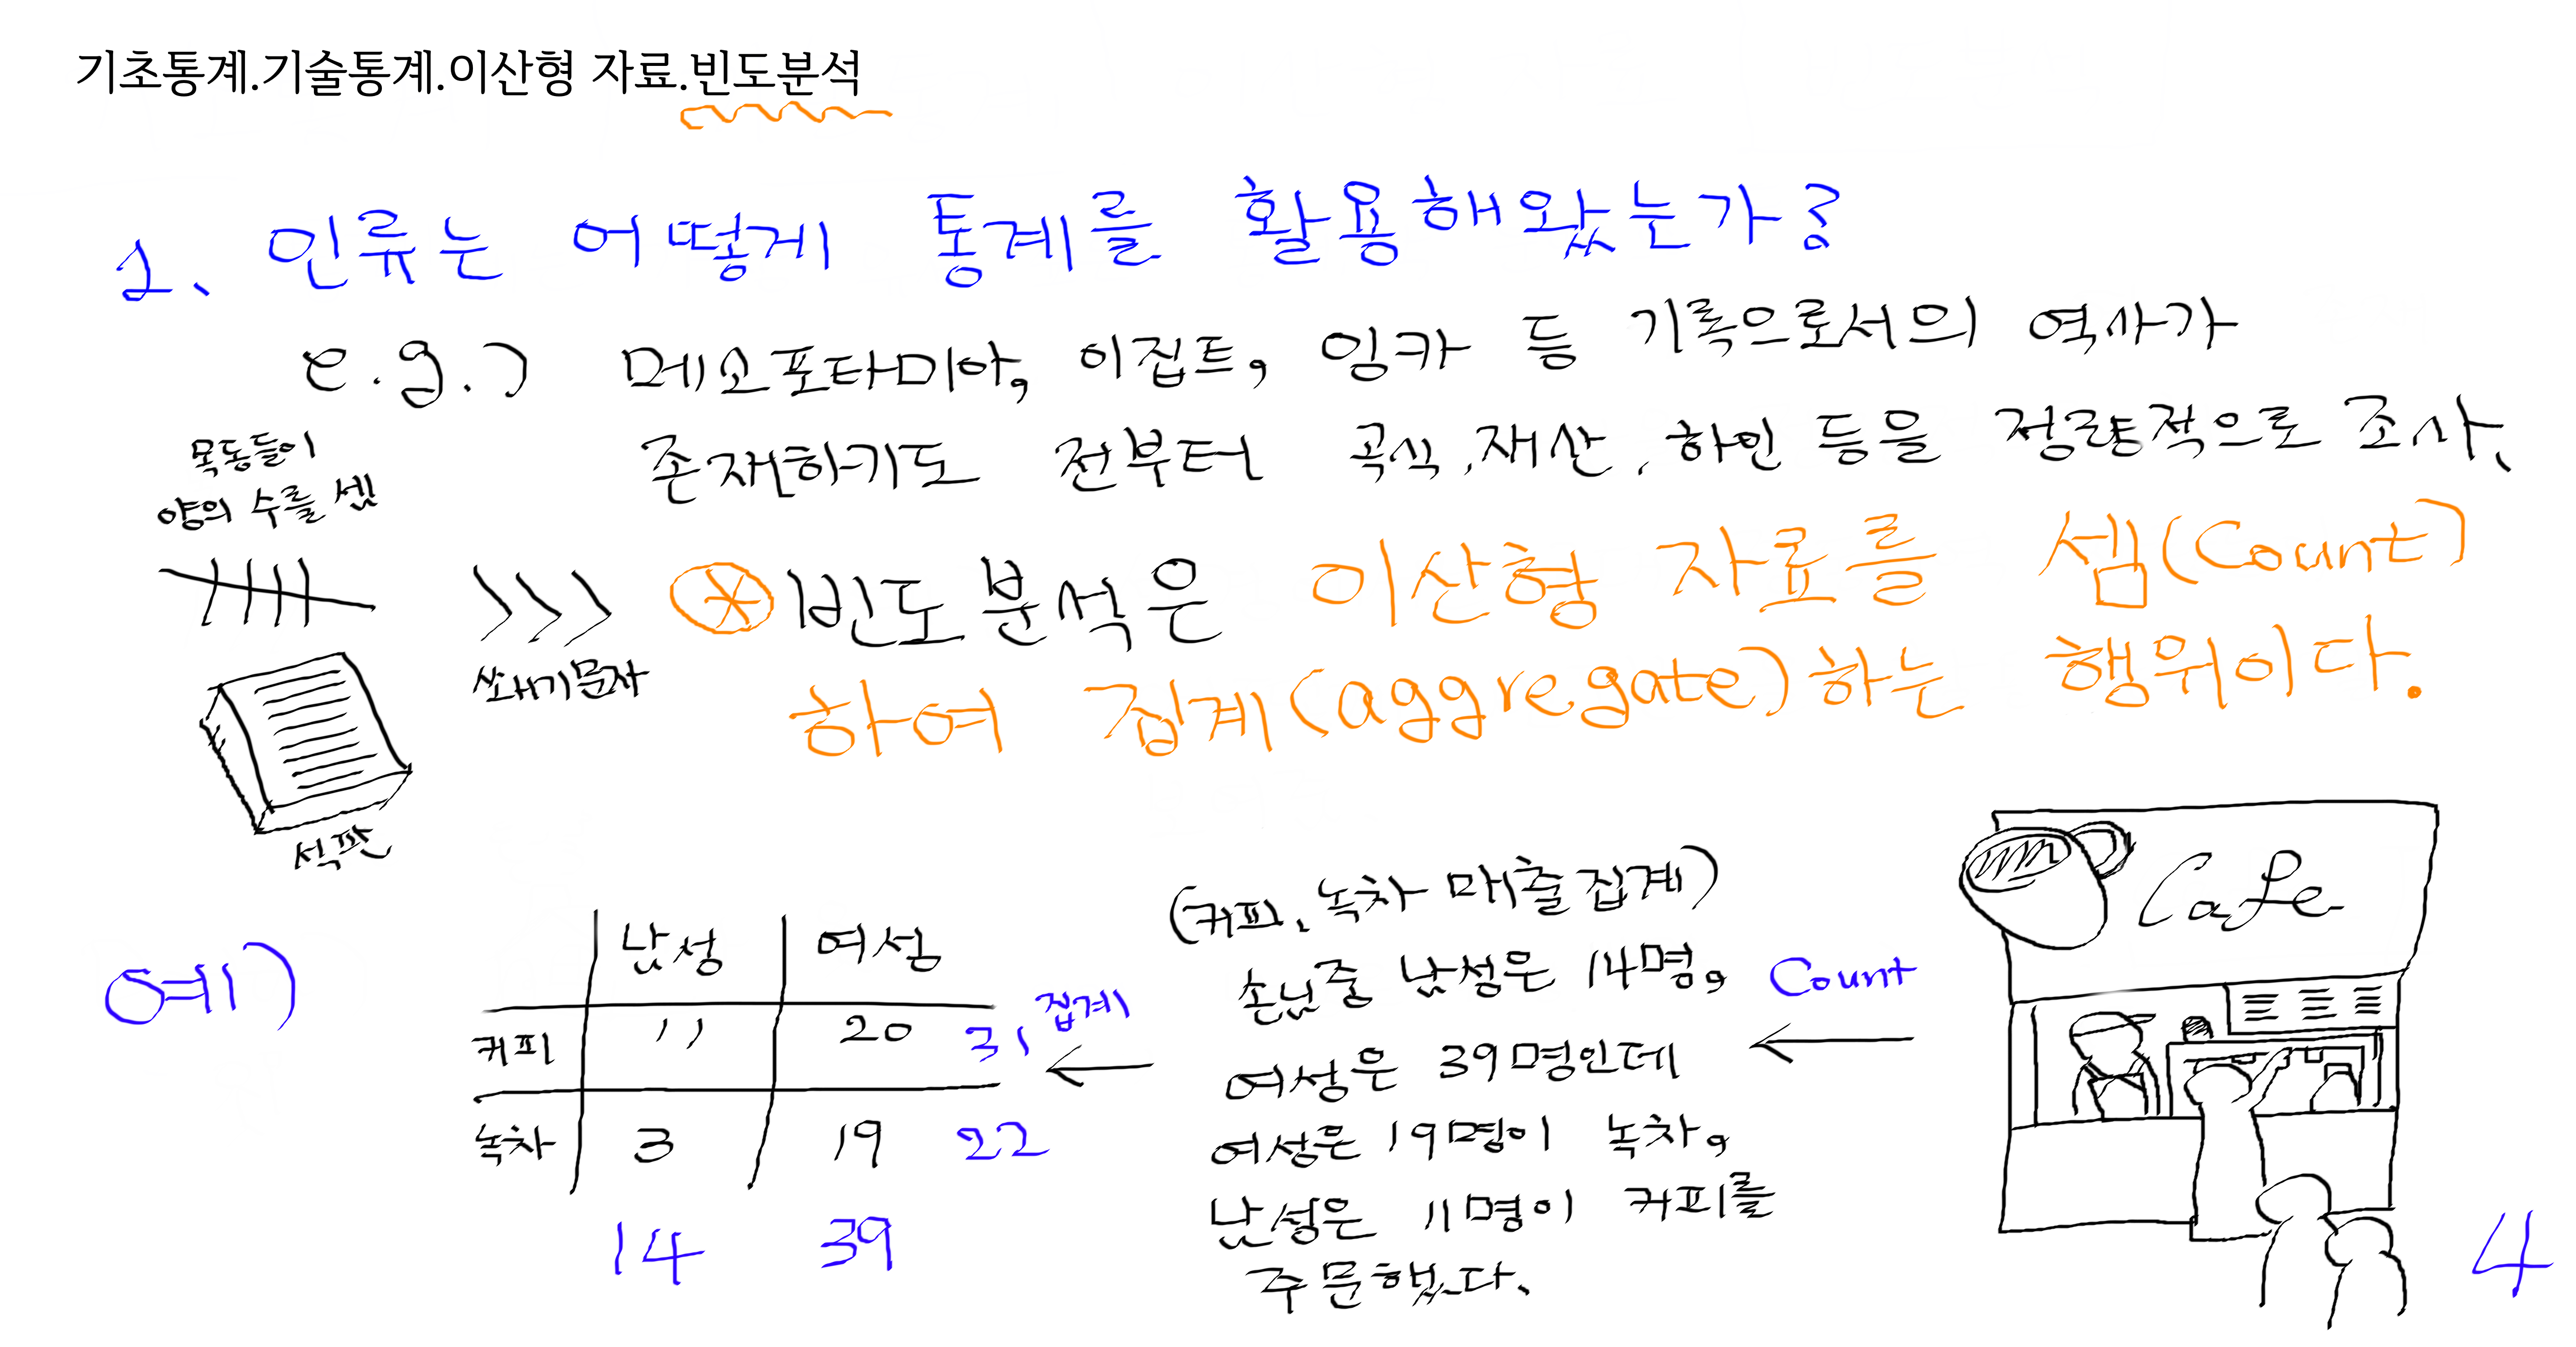 기초통계.기술통계.이산형 자료.빈도분석
1. 인류는 어떻게 통계를 활용해왔는가?
e.g.) 메소포타미아, 이집트, 잉카 등 기록으로서의 역사가
존재하기도 전부터 곡식, 재산, 하인 등을 정량적으로 조사.
목동들이
양의 수를 셈
쐐기문자
석판
* 빈도분석은 이산형 자료를 셈(Count)
하여 집계(aggregate)하는 행위이다.
예)
남성 여성
커피 11 20 31
녹차 3 19 22
14 39
집계
(커피, 녹차 매출집계)
손님중 남성은 14명,
여성은 39명인데
여성은 19명이 녹차,
남성은 11명이 커피를
주문했다.
Count
Cafe
4